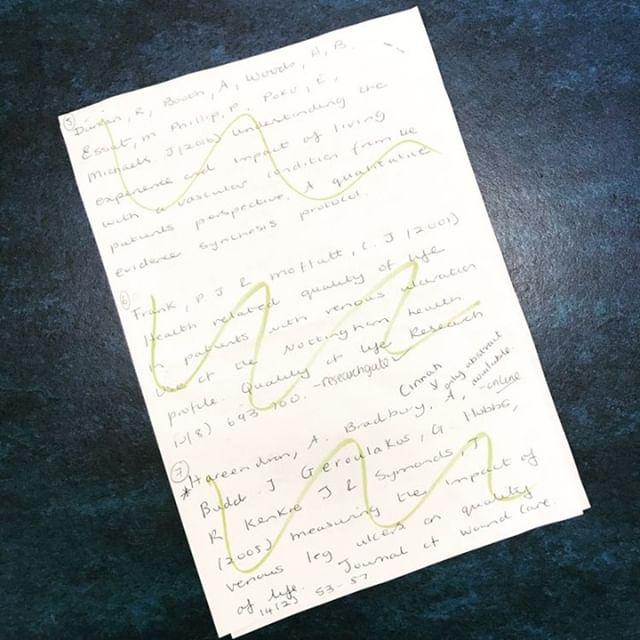 ⑤ Duncan, R, Booth, A, Woods, H, B.
Essat, M Phillip, P, Poku, E,
Michaels J (2016) Understanding the
experience and impact of living
with a vascular condition from the
patients perspective. A qualitative
evidence synthesis protocol.
⑥ Frank, P.J & Moffatt, C. J (2001)
Health related quality of life
in patients with venous ulceration
use of the Nottingham health
profile. Quality of life Research
10(8) 693-700. - researchgate
only abstract
available.
⑦ * Hareendran, A. Bradbury. A, - online
Budd J Geroulakos, G. Hobbs,
R Kenkre J & Symonds, T
(2005) measuring the impact of
venous leg ulcers on quality
of life. Journal of wound care.
14(2) 53-57